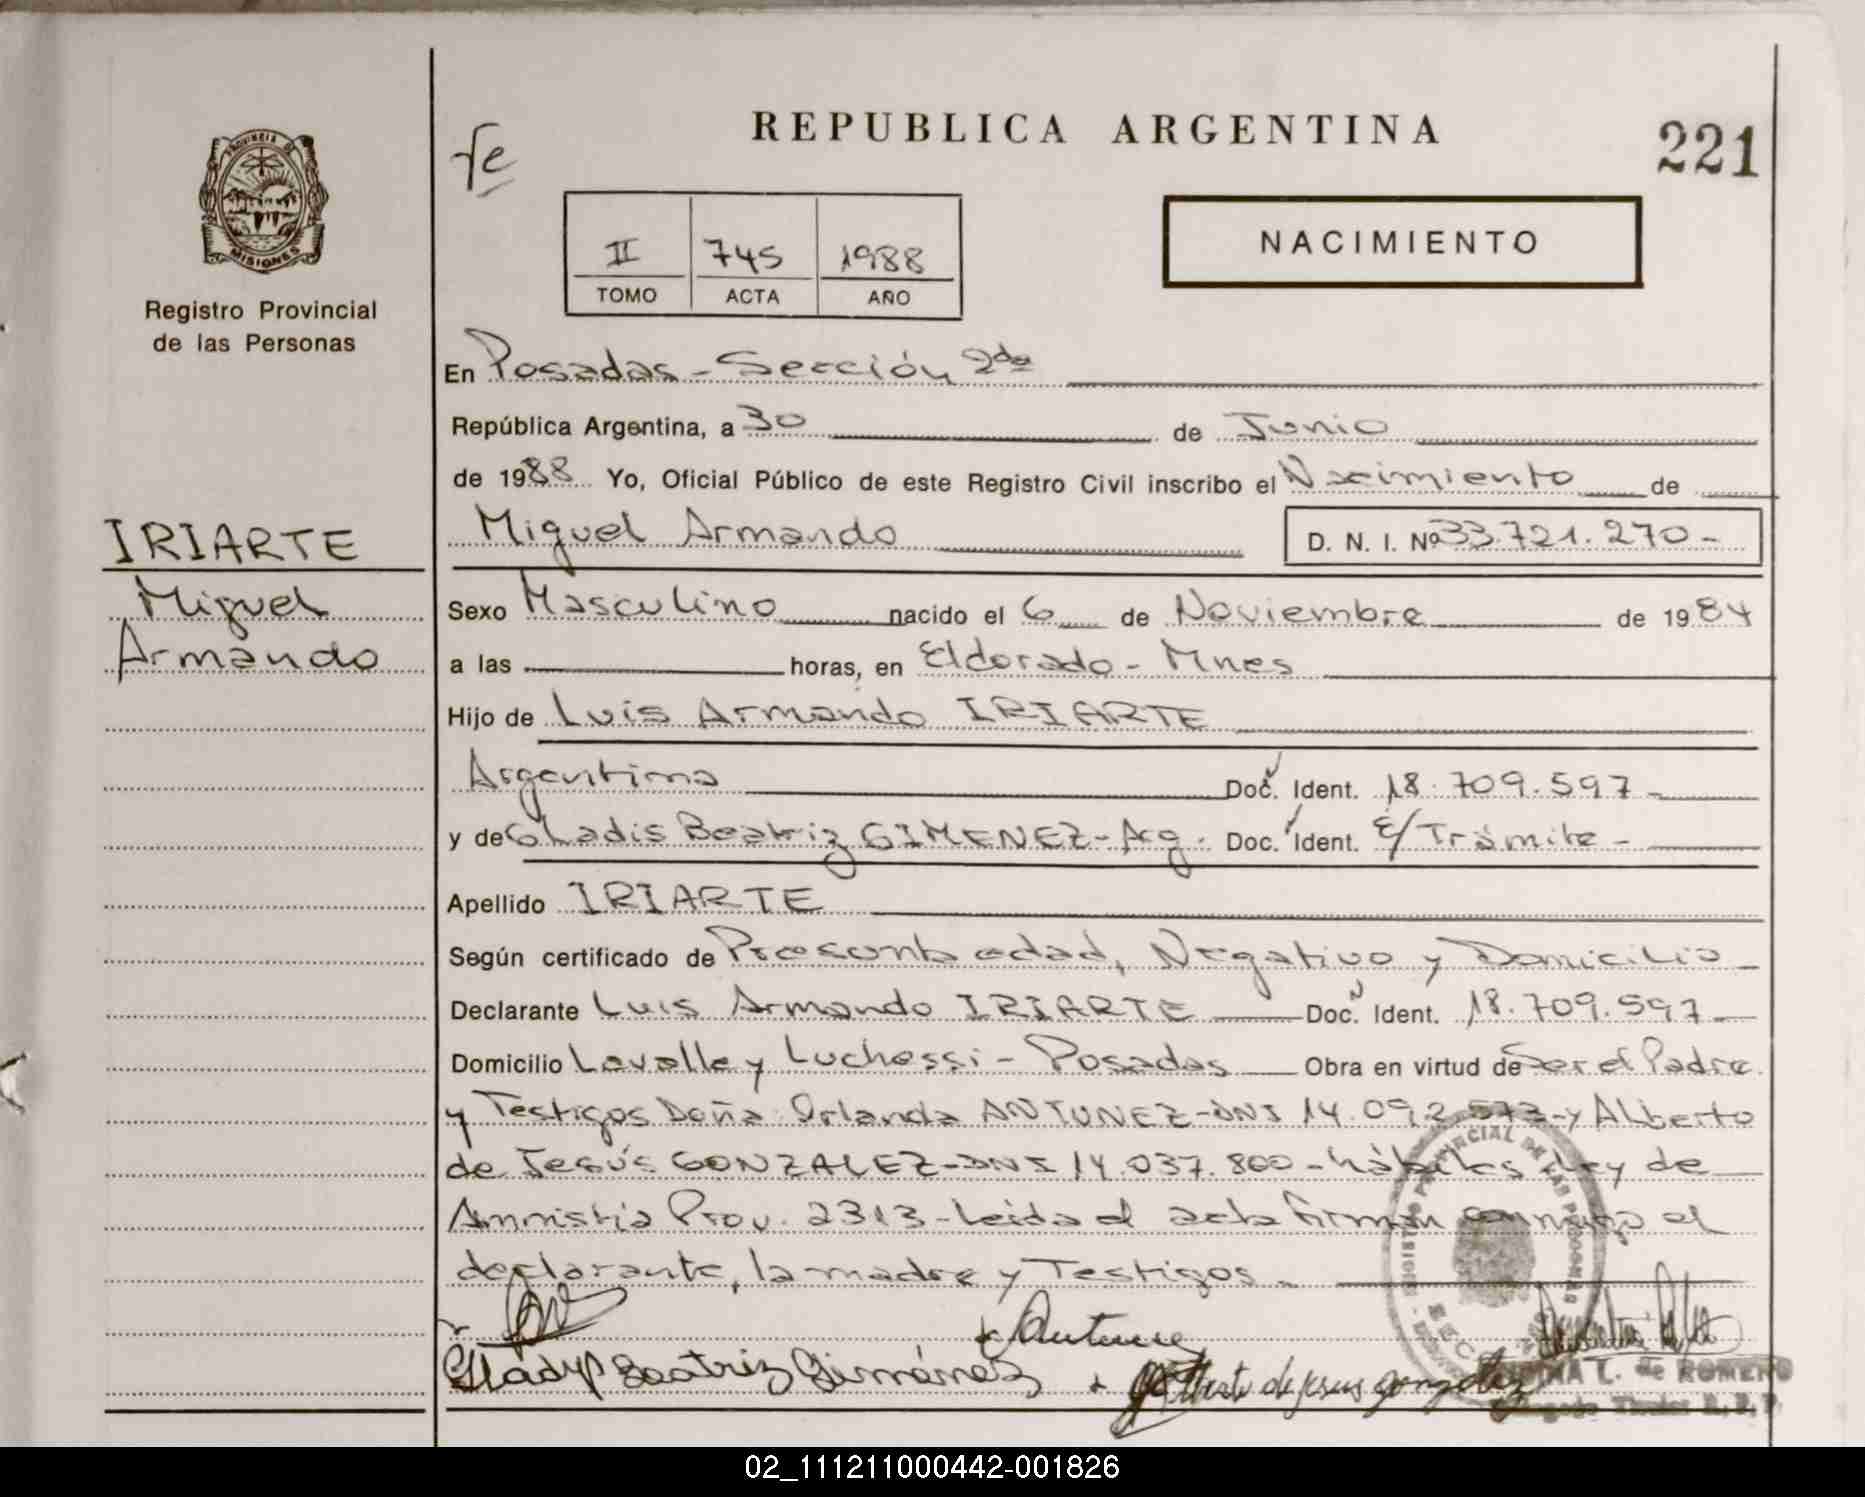 REPUBLICA ARGENTINA
221
PROVINCIA DE
MISIONES
Registro Provincial
de las Personas
NACIMIENTO
II 745 1988
TOMO ACTA AÑO
En Posadas - Sección 2da
República Argentina, a 30 de Junio
de 1988 Yo, Oficial Público de este Registro Civil inscribo el Nacimiento de
IRIARTE
Miguel
Armando
Miguel Armando D. N. I. Nº 33.721.270-
Sexo Masculino nacido el 6 de Noviembre de 1984
a las horas, en Eldorado - Mnes
Hijo de Luis Armando IRIARTE
Argentina Doc. Ident. 18.709.597-
y de Gladis Beatriz GIMENEZ-Arg. Doc. Ident. E/Trámite-
Apellido IRIARTE
Según certificado de Presunta edad, Negativo y Domicilio
Declarante Luis Armando IRIARTE Doc. Ident. 18.709.597-
Domicilio Lavalle y Luchessi - Posadas Obra en virtud de Ser el Padre
y Testigos Doña: Orlanda ANTUNEZ-DNI 14.092.573-y Alberto
de Jesús GONZALEZ-DNI 14.037.800-hábiles Ley de
Amnistía Prov. 2313-Leida el acta firman conmigo el
declarante, la madre y Testigos.
Antunez
Gladys Beatriz Giménez
Alberto de jesus gonzalez
T. de ROMERO
02_111211000442-001826